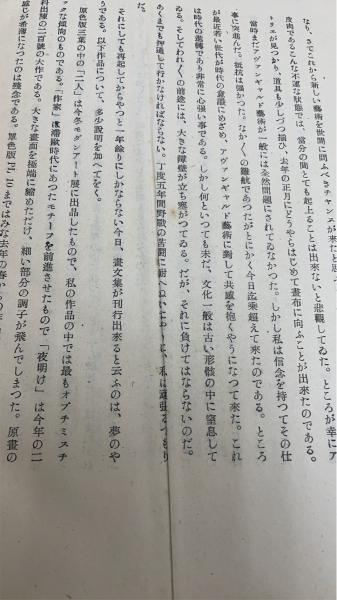 なり、さてこれから新しい藝術を世間に問ふべきチャンスが來たと思
皮肉であるこんな不運な狀態では、當分の間とても起上ることは出來ないと悲觀してゐた。ところが幸にア
トリエが見つかり、道具も少しづつ揃ひ、去年の正月にどうやらはじめて畫布に向ふことが出來たのである。
當時まだアヴァンギャルド藝術が一般には全然問題にされてゐなかつた。しかし私は信念を持つてその仕
事に突進んだ。抵抗は强かつた。なか〱の難航であつたがとにかく今日迄乘超えて來たのである。ところ
が最近若い世代が時代の意識にめざめ、アヴァンギャルド藝術に對して共感を抱くやうになつて來た。これ
は時代の進展であり非常に心强い事である。しかし何といつても未だ、文化一般は古い形骸の中に窒息して
ゐる。そしてわれ〱の前途には、大きな障壁が立ち塞がつてゐる。だが、それに負けてはならないのだ。
あくまでも押通して行かなければならない。丁度五年間野戰の苦鬪に耐へ
だ。
それにしても再起してからやつと一年餘りにしかならない今日、畫文集が刊行出來ると云ふのは、夢のや
うである。以下作品について、多少說明を加へてをく。
原色版三葉の中の「二人」は今冬モダンアート展に出品したもので、私の作品の中では最もオプチミスチ
ックな傾向のものである。「作家」は滯歐時代にあつたモチーフを前進させたもので「夜明け」は今年の二
科出陳の二百號の大作である。大きな畫面を極端に縮めただけ、細い部分の調子が飛んでしまつた。原畫の
感じが稀薄になつたのは殘念である。單色版